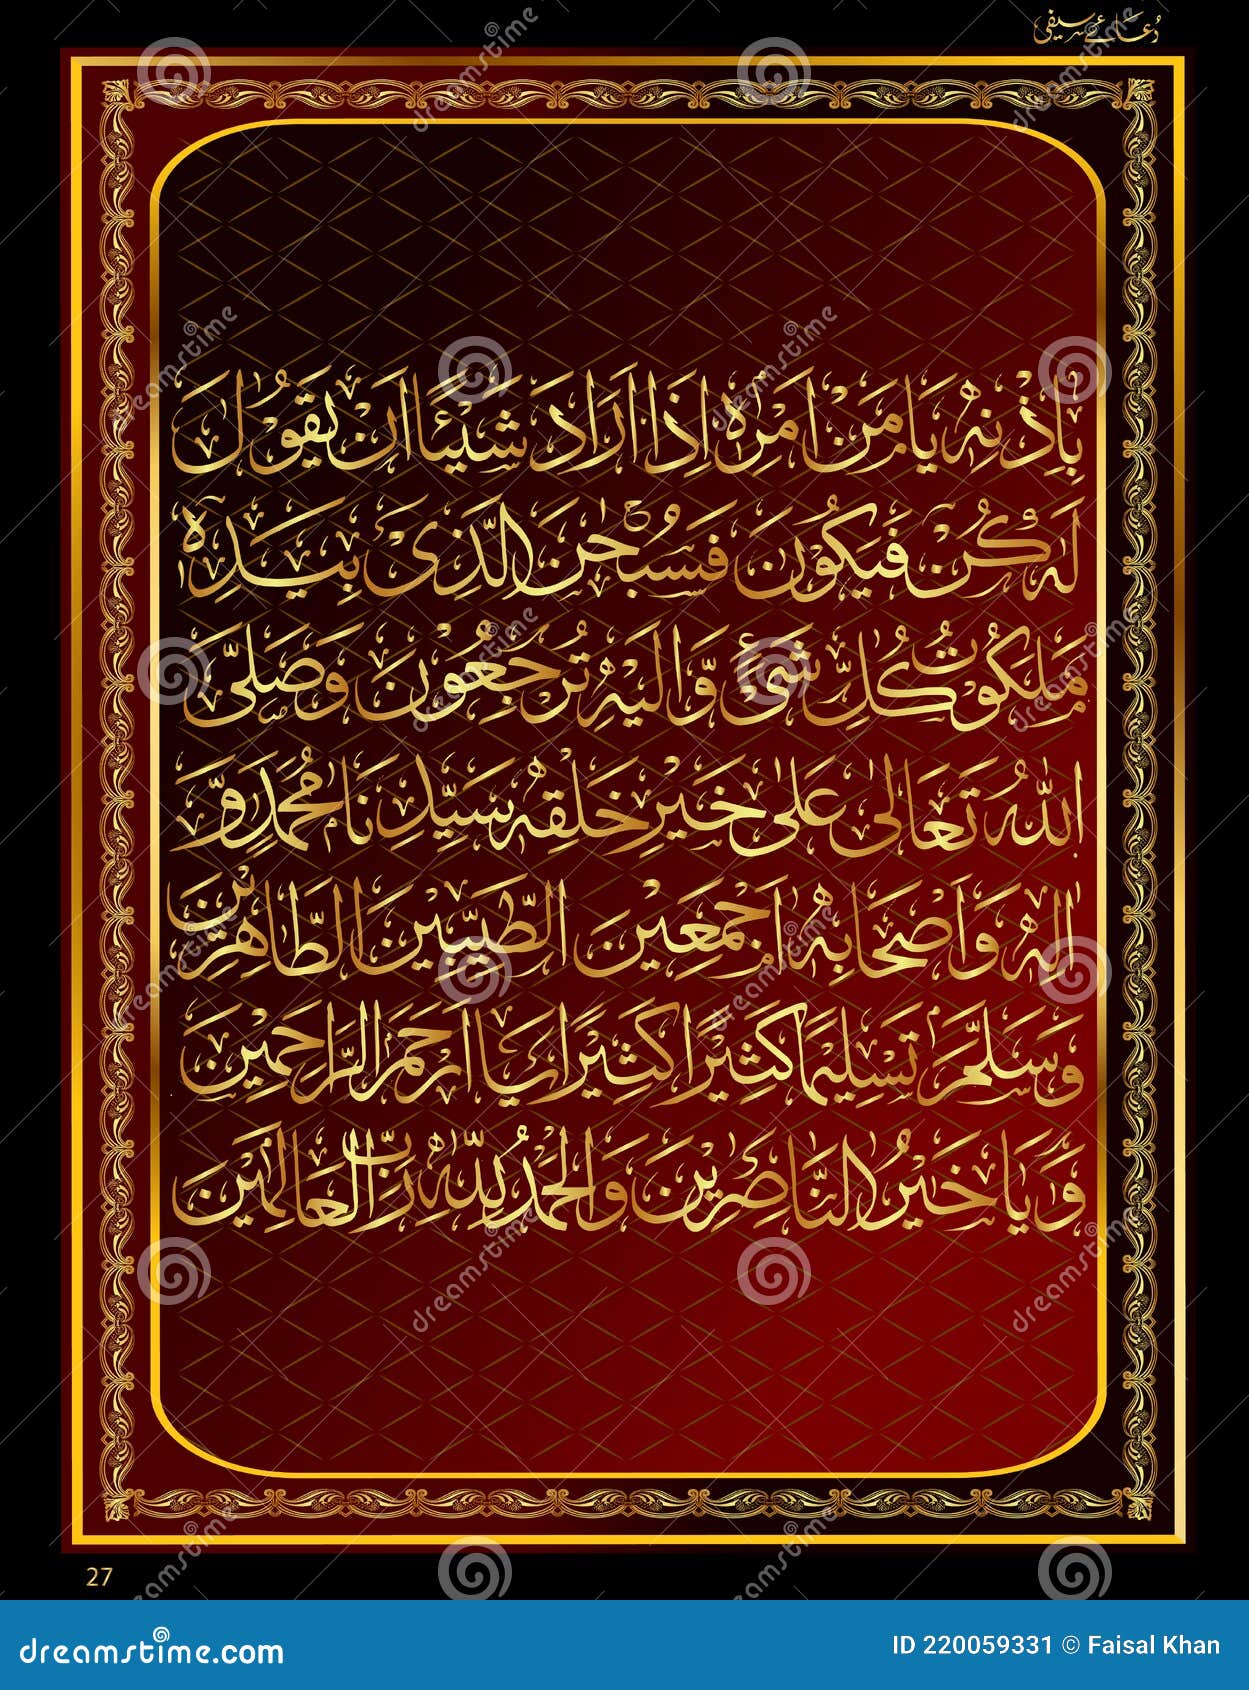 دُعائے سیفی
بِاِذْنِهٖ يَا مَنْ اَمْرُهٗ اِذَا اَرَادَ شَيْئًا اَنْ يَقُوْلَ
لَهٗ كُنْ فَيَكُوْنَ فَسُبْحٰنَ الَّذِىْ بِيَدِهٖ
مَلَكُوْتُ كُلِّ شَىْءٍ وَّاِلَيْهِ تُرْجَعُوْنَ وَصَلَّى
اللّٰهُ تَعَالٰى عَلٰى خَيْرِ خَلْقِهٖ سَيِّدِنَا مُحَمَّدٍ وَّ
اٰلِهٖ وَاَصْحَابِهٖ اَجْمَعِيْنَ الطَّيِّبِيْنَ الطَّاهِرِيْنَ
وَسَلَّمَ تَسْلِيْمًا كَثِيْرًا كَثِيْرًا يَا اَرْحَمَ الرَّاحِمِيْنَ
وَ يَا خَيْرُ النَّاصِرِيْنَ وَالْحَمْدُ لِلّٰهِ رَبِّ الْعَالَمِيْنَ
27
dreamstime.com
ID 220059331 © Faisal Khan